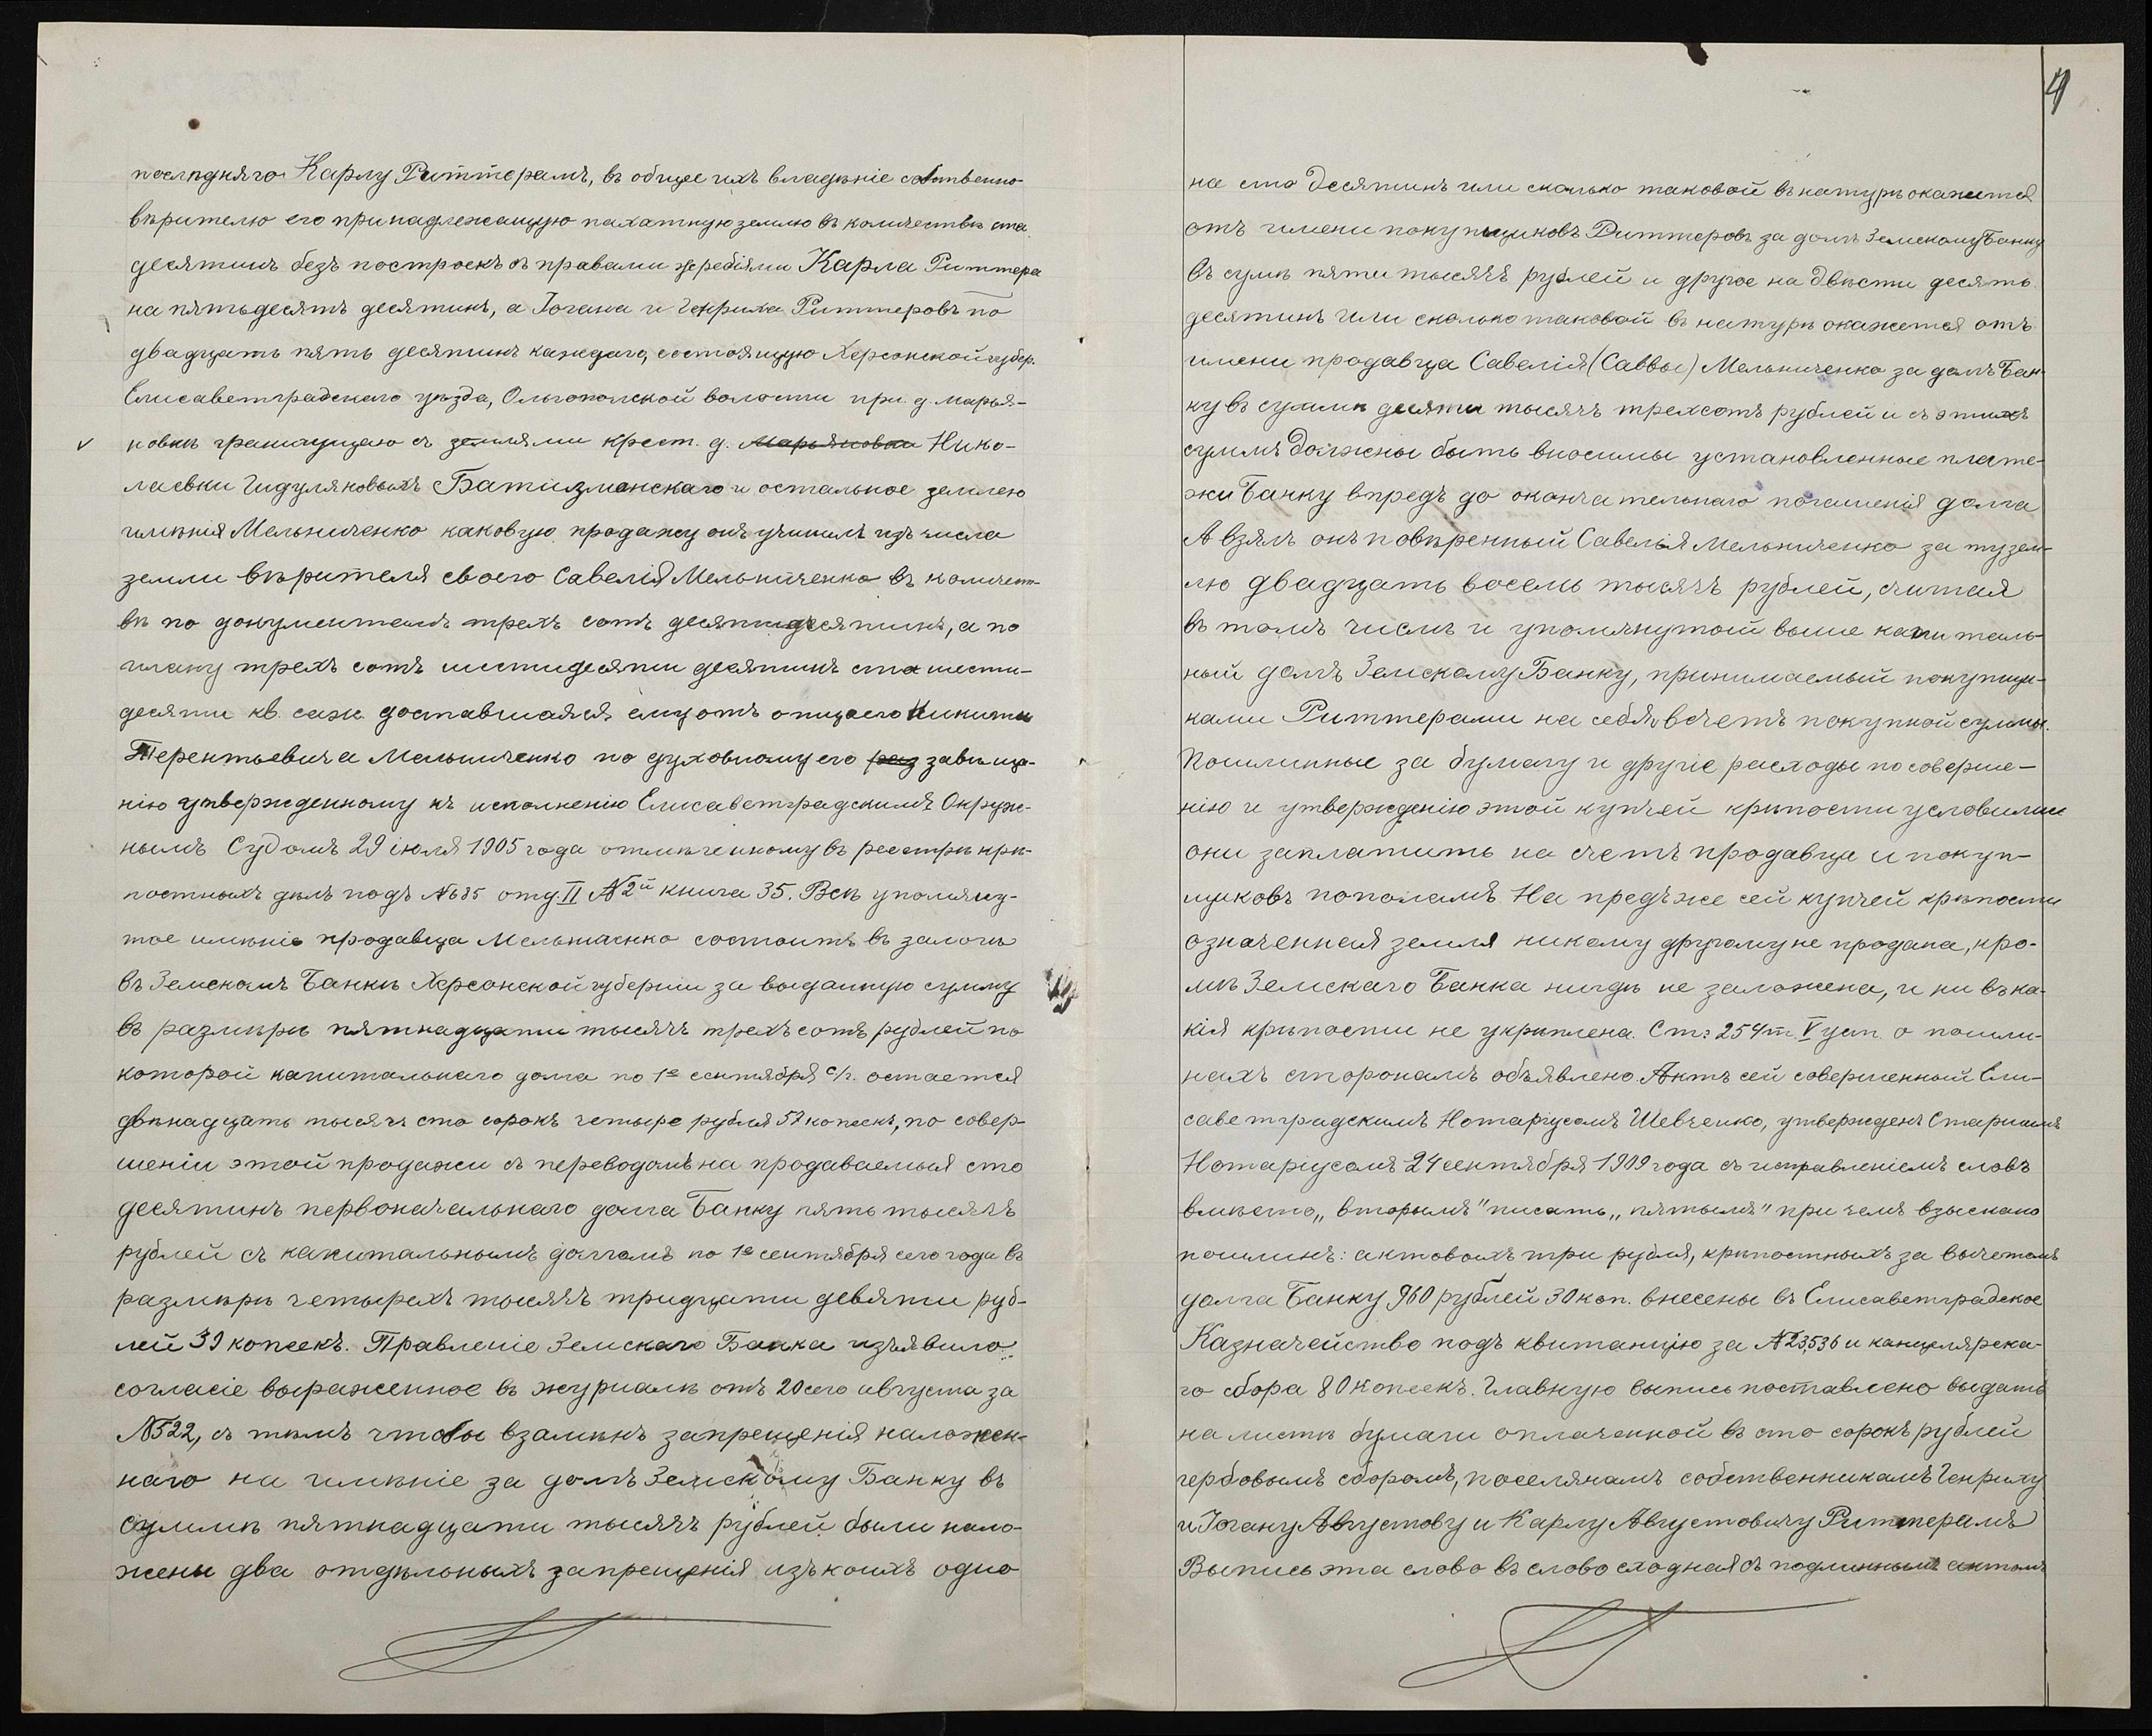 послѣдняго Карлу Риттерамъ, въ общее ихъ владѣніе собственно-
вѣрителю его принадлежащую пахатную землю въ количествѣ ста
десятинъ безъ построекъ съ правами жеребіями Карла Риттера
на пятьдесятъ десятинъ, а Іогана и Генриха Риттеровъ по
двадцать пять десятинъ каждаго, состоящую Херсонской губер.
Елисаветградскаго уѣзда, Ольгопольской волости при д. Марья-
новкѣ граничущую съ землями крест. д. Марьяновки Нико-
лаевки Гидуляновыхъ Батизманскаго и остальное землею
имѣнія Мельниченко каковую продажу онъ учинилъ изъ числа
земли вѣрителя своего Савелія Мельниченко въ количест-
вѣ по документамъ трехъ сотъ десяти десятинъ, а по
плану трехъ сотъ шестидесяти десятинъ ста шести-
десяти кв. саж. доставшаяся ему отъ отца его Никиты
Терентьевича Мельниченко по духовному его раз завѣща-
нію утвержденному къ исполненію Елисаветградскимъ Окруж-
нымъ Судомъ 29 іюля 1905 года отмѣченному въ реестрѣ крѣ-
постныхъ дѣлъ подъ №685 отд. II № 2й книга 35. Все упомяну-
тое имѣніе продавца Мельниченко состоитъ въ залогѣ
въ Земскомъ Банкѣ Херсонской губерніи за выданную сумму
въ размѣрѣ пятнадцати тысячъ трехъ сотъ рублей по
которой капитальнаго долга по 1е сентября с/г. остается
двѣнадцать тысячъ сто сорокъ четыре рубля 57 копеекъ, по совер-
шеніи этой продажи съ переводомъ на продаваемыя сто
десятинъ первоначальнаго долга Банку пять тысячъ
рублей съ капитальнымъ долгомъ по 1е сентября сего года въ
размѣрѣ четырехъ тысячъ тридцати девяти руб-
лей 39 копеекъ. Правленіе Земскаго Банка изъявило
согласіе выраженное въ журналѣ отъ 20 сего августа за
№522, съ тѣмъ чтобы взамѣнъ запрещенія наложен-
наго на имѣніе за долгъ Земскому Банку въ
суммѣ пятнадцати тысячъ рублей были нало-
жены два отдѣльныхъ запрещенія изъ коихъ одно
4
на сто десятинъ или сколько таковой въ натурѣ окажется
отъ имени покупщиковъ Риттеровъ за долгъ Земскому Банку
въ сумѣ пяти тысячъ рублей и другое на двѣсти десять
десятинъ или сколько таковой въ натурѣ окажется отъ
имени продавца Савелія (Саввы) Мельниченко за долгъ Бан-
ку въ суммѣ десяти тысячъ трехсотъ рублей и съ этихъ
суммъ должны быть вносимы установленные плате-
жи Банку впредъ до окончательнаго погашенія долга
А взялъ онъ повѣренный Савелія Мельниченко за ту зем-
лю двадцать восемь тысячъ рублей, считая
въ томъ числѣ и упомянутой выше капиталь-
ный долгъ Земскому Банку, принимаемый покупщи-
ками Риттерами на себя въ счетъ покупной суммы.
Пошлинные за бумагу и другіе расходы по соверше-
нію и утвержденію этой купчей крѣпости условились
они заплатить на счетъ продавца и покуп-
щиковъ пополамъ. На предъ же сей купчей крѣпости
означенная земля никому другому не продана, кро-
мѣ Земскаго Банка нигдѣ не заложена, и ни въ ка-
кія крѣпости не укрѣплена. Ст: 254 т. V уст. о пошли-
нахъ сторонамъ объявлено. Актъ сей совершенный Ели-
саветградскимъ Нотаріусомъ Шевченко, утвержденъ Старшимъ
Нотаріусомъ 24 сентября 1909 года съ исправленіемъ словъ
вмѣсто „вторымъ" писать „пятымъ" при чемъ взыскано
пошлинъ: актовыхъ три рубля, крѣпостныхъ за вычетомъ
долга Банку 960 рублей 30 коп. внесены въ Елисаветградское
Казначейство подъ квитанцію за №23536 и канцелярска-
го сбора 80 копеекъ. Главную выпись поставлено выдать
на листѣ бумаги оплаченной въ сто сорокъ рублей
гербовымъ сборомъ, поселянамъ собственникамъ Генриху
и Іогану Августову и Карлу Августовичу Риттерамъ
Выпись эта слово въ слово сходная съ подлиннымъ актомъ